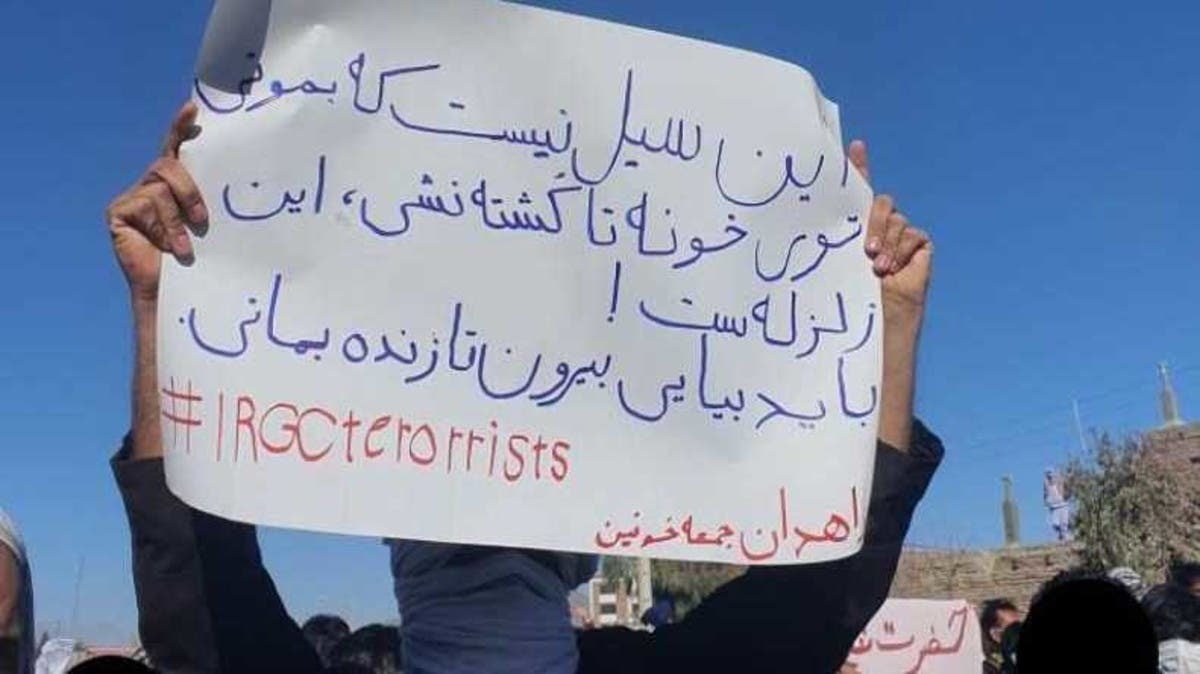 این سیل نیست که بمونی
توی خونه تا کشته نشی، این
زلزله ست!
باید بیایی بیرون تا زنده بمانی.
#IRGCterorrists
اهدان جمعه خونین
نفرت